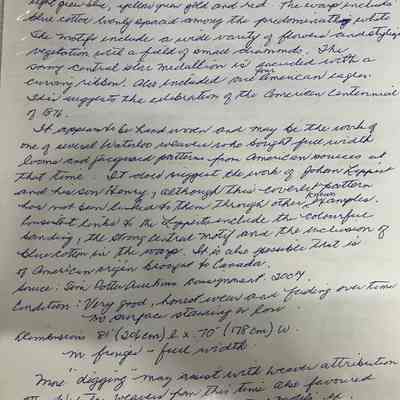 light green blue, yellow green gold and red. The warp includes
blue cotton evenly spaced among the predominately white
The motifs include a wide variety of flowers and stylized
vegetation with a field of small diamonds. The
strong central star medallion is joined with a
curving ribbon. Also included are four American eagles.
This suggests the celebration of the American Centennial
of 1876.
It appears to be hand woven and may be the work of
one of several Waterloo weavers who bought full width
looms and jacquard patterns from American sources at
that time. It does suggest the work of Johan Lippert
and his son Henry, although this coverlet pattern
has not been linked to them through other known examples.
Consistent links to the Lipperts include the colourful
banding, the strong central motif and the inclusion of
blue cotton in the warp. It is also possible that is
of American origin brought to Canada.
Source: Potter Auctions consignment 2004
Condition: Very good, honest wear and fading over time
no surface staining or loss
Dimensions 81" (206cm) l x 70" (178cm) w.
no fringe - full width
More "digging" may assist with weaver attribution
weavers from this time also favoured